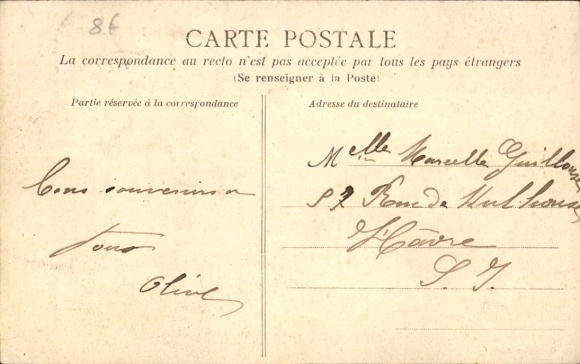 86
CARTE POSTALE
La correspondance au recto n'est pas acceptée par tous les pays étrangers
(Se renseigner à la Poste)
Partie réservée à la correspondance
Adresse du destinataire
Melle Marcelle
Rue de Mulhouse
Hâvre
S. I.
Bons souvenirs a
tous